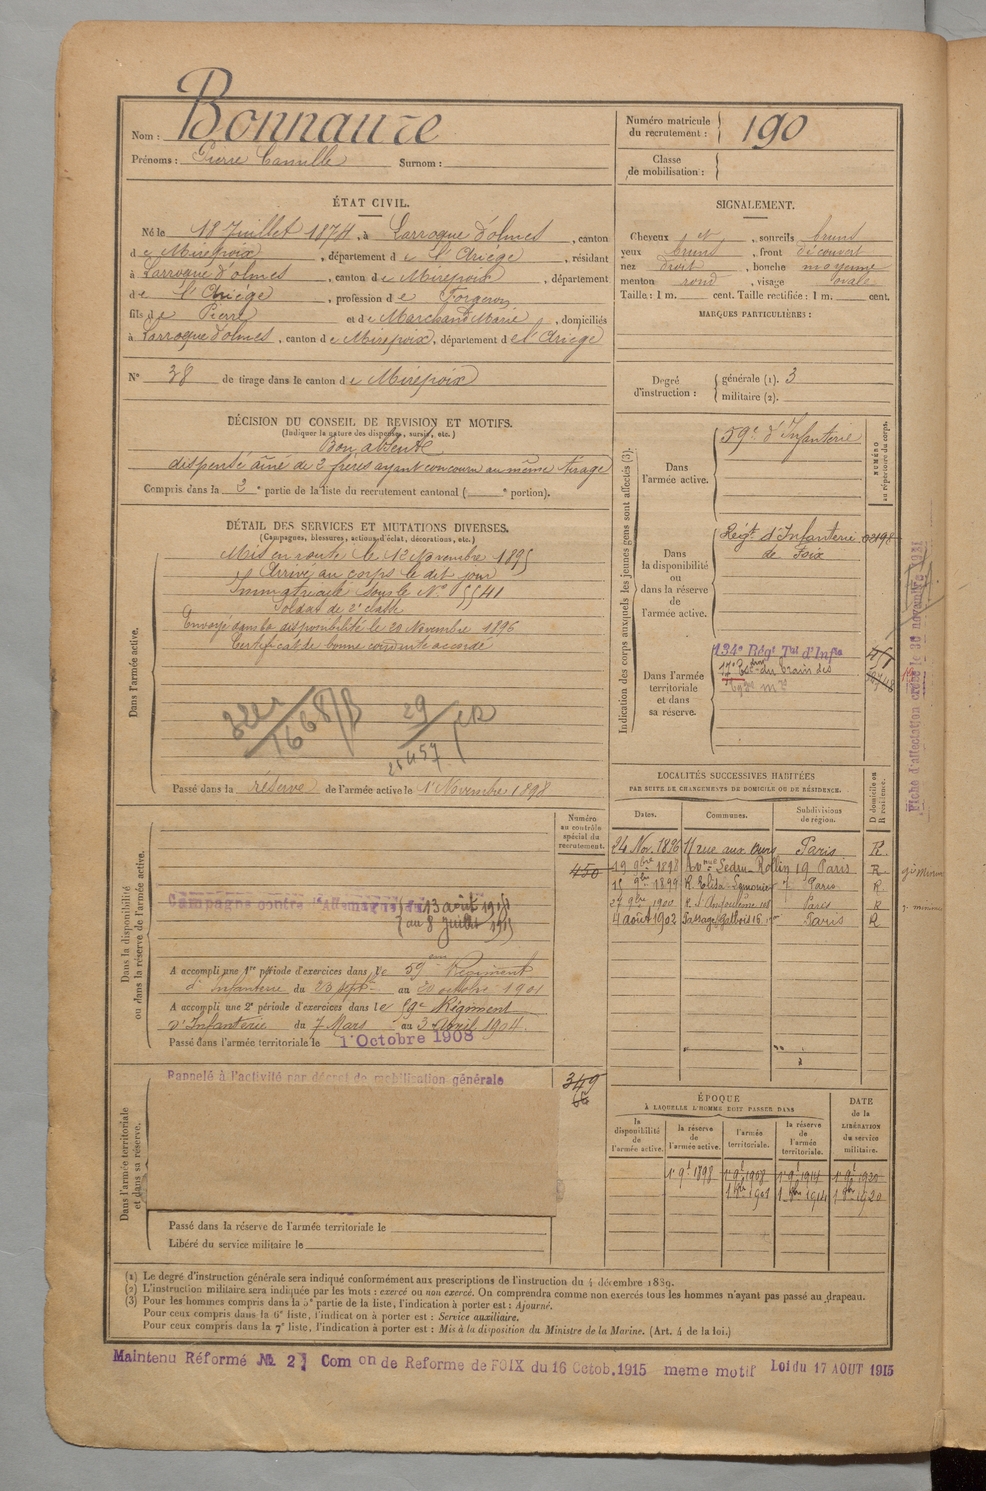 Nom : Bonnaure
Prénoms : Pierre Camille Surnom :
Numéro matricule du recrutement : 190
Classe de mobilisation :
ÉTAT CIVIL.
Né le 18 Juillet 1874, à Larroque d'olmes, canton
de Mirepoix, département de l'Ariège, résidant
à Larroque d'olmes, canton de Mirepoix, département
de l'Ariège, profession de Forgeron
fils de Pierre et de Marchand Marie, domiciliés
à Larroque d'olmes, canton de Mirepoix, département de l'Ariège
N° 38 de tirage dans le canton de Mirepoix
SIGNALEMENT.
Cheveux et, sourcils bruns
yeux bruns, front découvert
nez droit, bouche moyenne
menton rond, visage ovale
Taille : 1 m. cent. Taille rectifiée : 1 m. cent.
MARQUES PARTICULIÈRES :
Degré d'instruction : générale (1). 3
militaire (2).
DÉCISION DU CONSEIL DE REVISION ET MOTIFS.
(Indiquer la nature des dispenses, sursis, etc.)
Bon absent
dispensé aîné de 2 frères ayant concouru au même tirage
Compris dans la 2e partie de la liste du recrutement cantonal ( e portion).
DÉTAIL DES SERVICES ET MUTATIONS DIVERSES.
(Campagnes, blessures, actions d'éclat, décorations, etc.)
Dans l'armée active.
Mis en route le 12 Novembre 1895
Arrivé au corps le dit jour
Immatriculé sous le N° 5541
Soldat de 2e classe
Envoyé dans la disponibilité le 20 Novembre 1896
Certificat de bonne conduite accordé
29
Passé dans la réserve de l'armée active le 1r Novembre 1898
Indication des corps auxquels les jeunes gens sont affectés (3).
NUMÉRO au répertoire du corps.
Dans l'armée active.
59e d'Infanterie
Dans la disponibilité ou dans la réserve de l'armée active.
Régt d'Infanterie
de Foix
Dans l'armée territoriale et dans sa réserve.
134e Régt Tal d'Infie
17e Esc on du train des
Fiche d'affectation créée le 30 novembre 1931
LOCALITÉS SUCCESSIVES HABITÉES
PAR SUITE DE CHANGEMENTS DE DOMICILE OU DE RÉSIDENCE.
Dates. Communes. Subdivisions de région. D domicile ou R résidence.
24 Nov. 1896 11 rue aux Ours Paris R
19 9bre 1898 Avnue Ledru-Rollin 19 Paris R
15 9bre 1899 R. Elisa Lemonier 7 Paris R
27 9bre 1900 R. d'Angoulême Paris R
4 août 1902 Passage Gallois 16 Paris R
Dans la disponibilité ou dans la réserve de l'armée active.
Numéro au contrôle spécial du recrutement.
450
Campagne contre l'Allemagne du 13 août 1914
7 au 8 Juillet 1915
A accompli une 1re période d'exercices dans le 59eme Régiment
d'Infanterie du 23 septe au 20 octobre 1901
A accompli une 2e période d'exercices dans le 59e Régiment
d'Infanterie du 7 Mars au 3 Avril 1904
Passé dans l'armée territoriale le 1r Octobre 1908
Dans l'armée territoriale et dans sa réserve.
Rappelé à l'activité par décret de mobilisation générale
349
Passé dans la réserve de l'armée territoriale le
Libéré du service militaire le
ÉPOQUE
À LAQUELLE L'HOMME DOIT PASSER DANS
la disponibilité de l'armée active. la réserve de l'armée active. l'armée territoriale. la réserve de l'armée territoriale. DATE de la LIBÉRATION du service militaire.
(1) Le degré d'instruction générale sera indiqué conformément aux prescriptions de l'instruction du 4 décembre 1889.
(2) L'instruction militaire sera indiquée par les mots : exercé ou non exercé. On comprendra comme non exercés tous les hommes n'ayant pas passé au drapeau.
(3) Pour les hommes compris dans la 5e partie de la liste, l'indication à porter est : Ajourné.
Pour ceux compris dans la 6e liste, l'indication à porter est : Service auxiliaire.
Pour ceux compris dans la 7e liste, l'indication à porter est : Mis à la disposition du Ministre de la Marine. (Art. 4 de la loi.)
Maintenu Réformé № 2 Com on de Reforme de FOIX du 16 Octob. 1915 meme motif Loi du 17 AOUT 1915